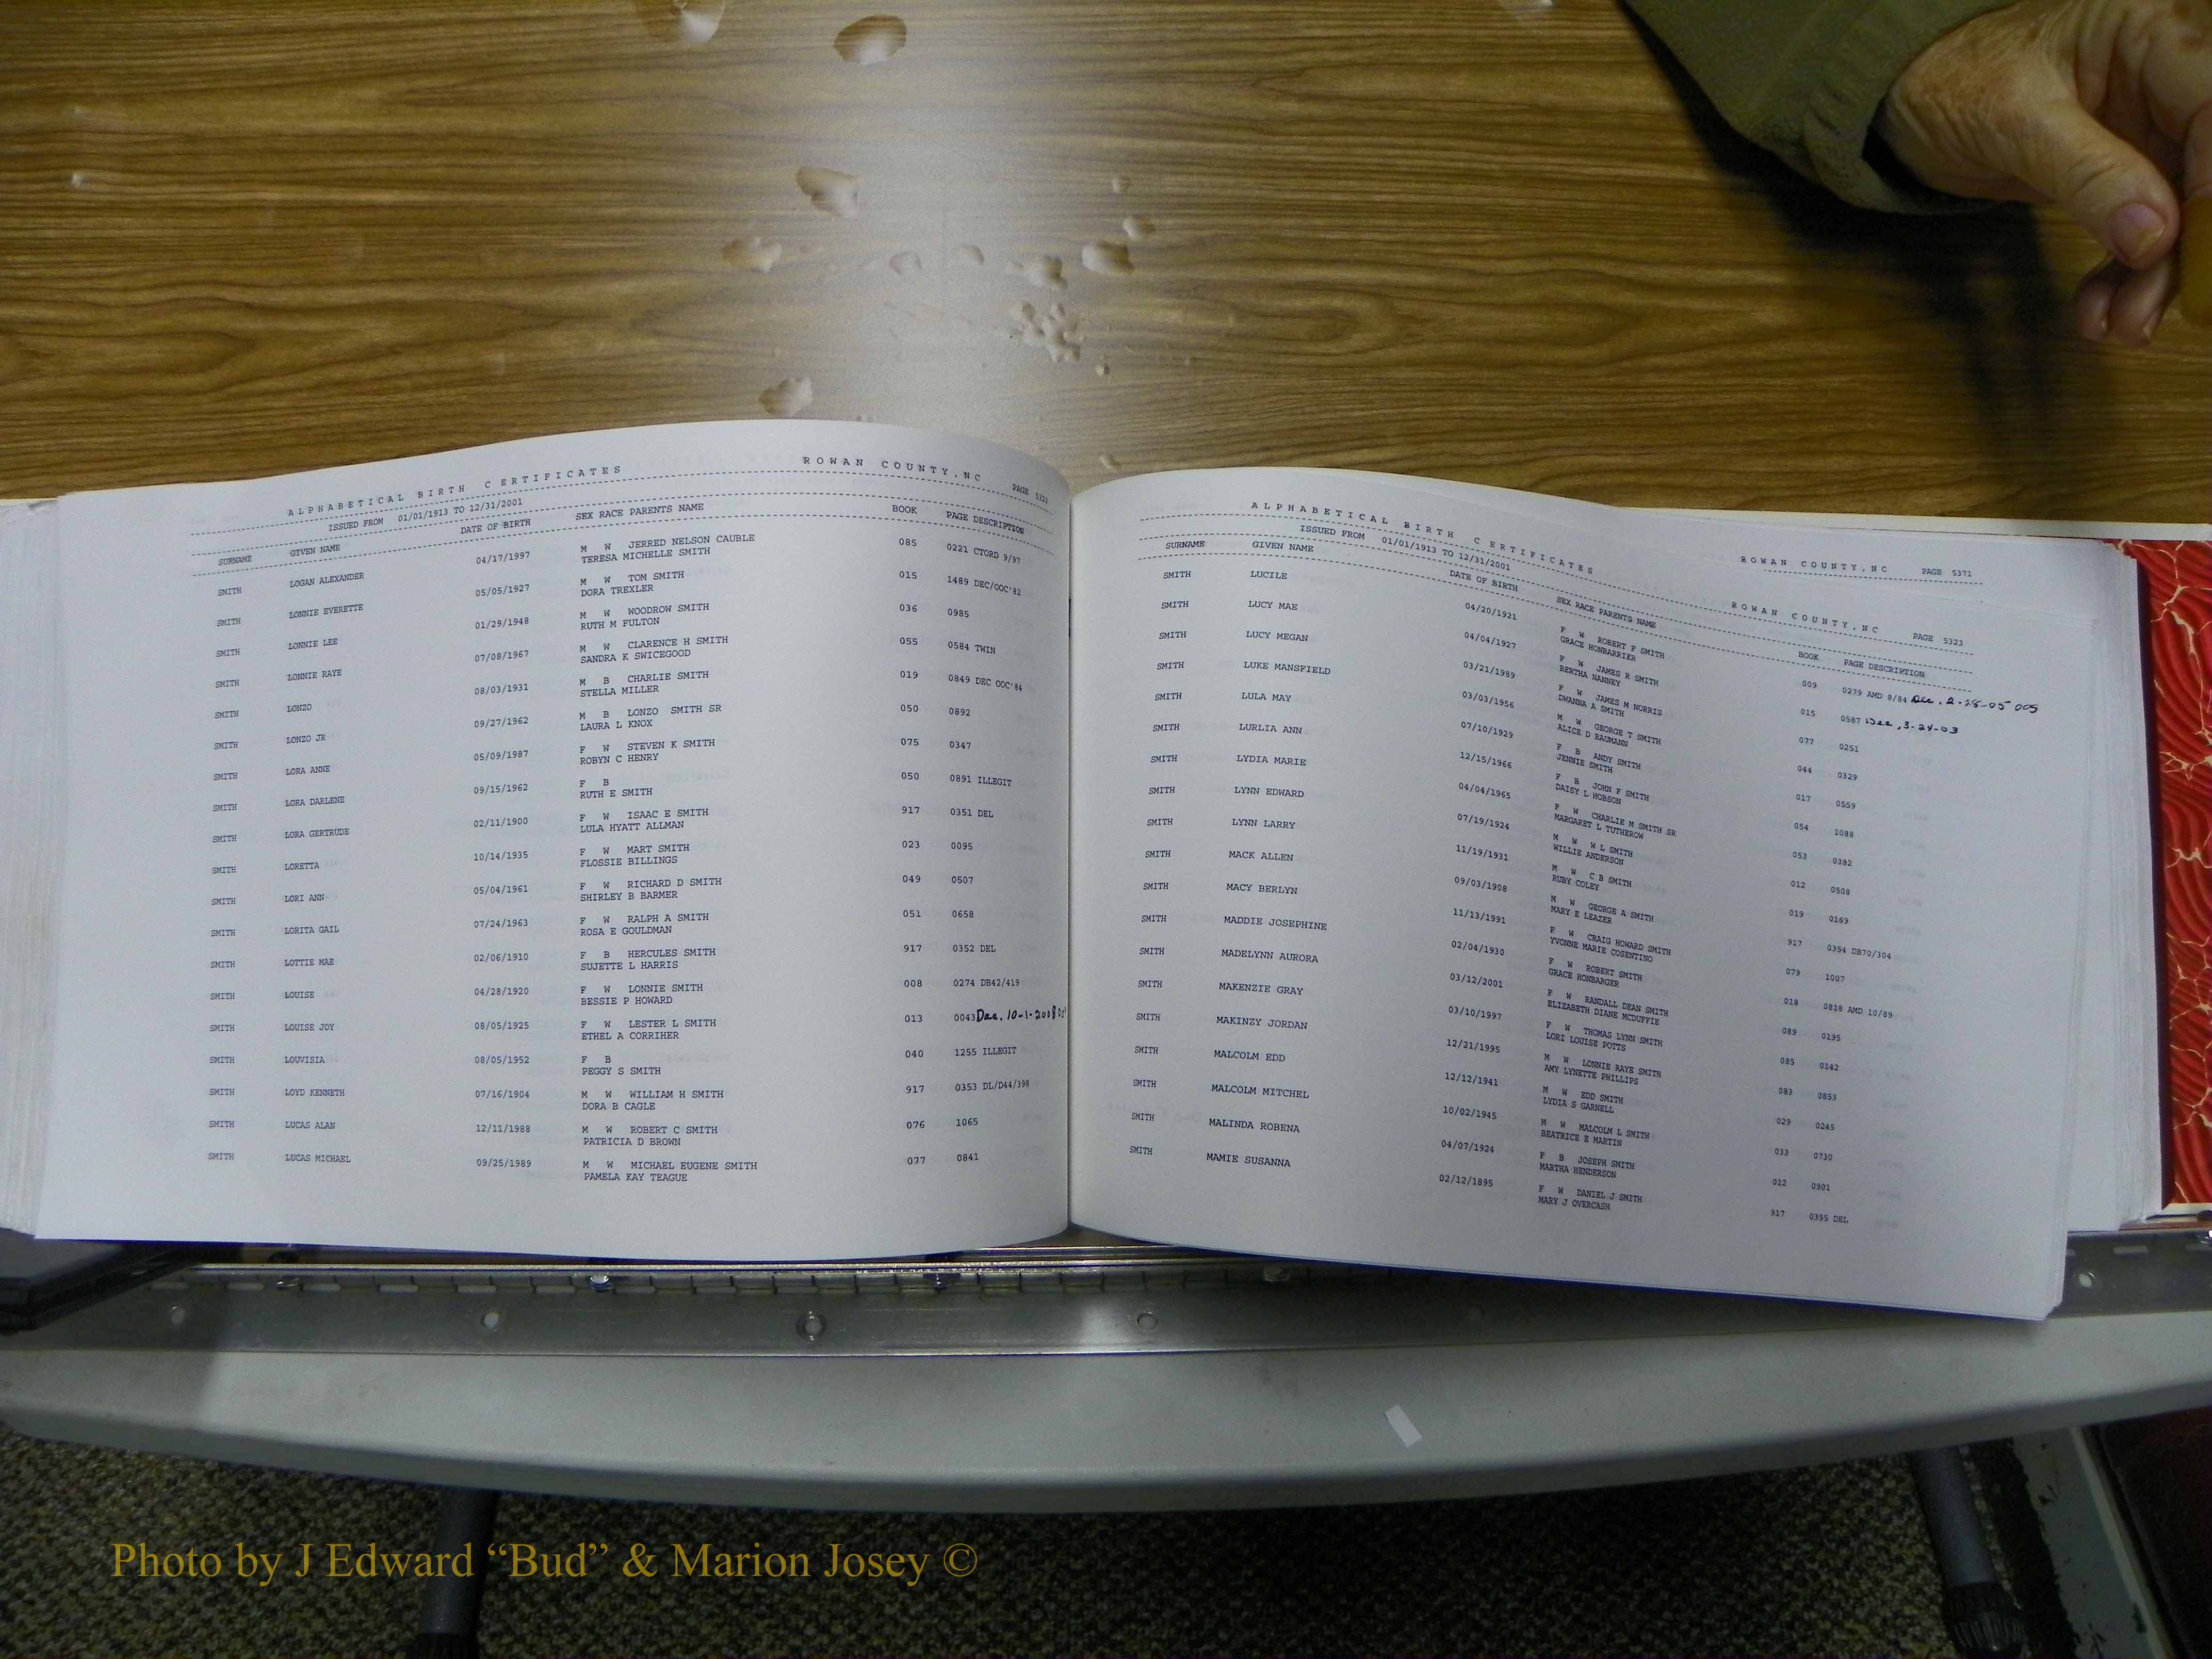 ALPHABETICAL BIRTH CERTIFICATES ROWAN COUNTY,NC PAGE 5322
ISSUED FROM 01/01/1913 TO 12/31/2001
SURNAME GIVEN NAME DATE OF BIRTH SEX RACE PARENTS NAME BOOK PAGE DESCRIPTION
SMITH LOGAN ALEXANDER 04/17/1997 M W JERRED NELSON CAUBLE 085 0221 CTORD 9/97
TERESA MICHELLE SMITH
SMITH LONNIE EVERETTE 05/05/1927 M W TOM SMITH 015 1489 DEC/OOC'82
DORA TREXLER
SMITH LONNIE LEE 01/29/1948 M W WOODROW SMITH 036 0985
RUTH M FULTON
SMITH LONNIE RAYE 07/08/1967 M W CLARENCE H SMITH 055 0584 TWIN
SANDRA K SWICEGOOD
SMITH LONZO 08/03/1931 M B CHARLIE SMITH 019 0849 DEC OOC'84
STELLA MILLER
SMITH LONZO JR 09/27/1962 M B LONZO SMITH SR 050 0892
LAURA L KNOX
SMITH LORA ANNE 05/09/1987 F W STEVEN K SMITH 075 0347
ROBYN C HENRY
SMITH LORA DARLENE 09/15/1962 F B 050 0891 ILLEGIT
RUTH E SMITH
SMITH LORA GERTRUDE 02/11/1900 F W ISAAC E SMITH 917 0351 DEL
LULA HYATT ALLMAN
SMITH LORETTA 10/14/1935 F W MART SMITH 023 0095
FLOSSIE BILLINGS
SMITH LORI ANN 05/04/1961 F W RICHARD D SMITH 049 0507
SHIRLEY B BARMER
SMITH LORITA GAIL 07/24/1963 F W RALPH A SMITH 051 0658
ROSA E GOULDMAN
SMITH LOTTIE MAE 02/06/1910 F B HERCULES SMITH 917 0352 DEL
SUJETTE L HARRIS
SMITH LOUISE 04/28/1920 F W LONNIE SMITH 008 0274 DB42/419
BESSIE P HOWARD
SMITH LOUISE JOY 08/05/1925 F W LESTER L SMITH 013 0043 Dec. 10-1-2008
ETHEL A CORRIHER
SMITH LOUVISIA 08/05/1952 F B 040 1255 ILLEGIT
PEGGY S SMITH
SMITH LOYD KENNETH 07/16/1904 M W WILLIAM H SMITH 917 0353 DL/D44/398
DORA B CAGLE
SMITH LUCAS ALAN 12/11/1988 M W ROBERT C SMITH 076 1065
PATRICIA D BROWN
SMITH LUCAS MICHAEL 09/25/1989 M W MICHAEL EUGENE SMITH 077 0841
PAMELA KAY TEAGUE
ROWAN COUNTY,NC PAGE 5371
ALPHABETICAL BIRTH CERTIFICATES ROWAN COUNTY,NC PAGE 5323
ISSUED FROM 01/01/1913 TO 12/31/2001
SURNAME GIVEN NAME DATE OF BIRTH SEX RACE PARENTS NAME BOOK PAGE DESCRIPTION
SMITH LUCILE 04/20/1921 F W ROBERT F SMITH 009 0279 AMD 8/84 Dec. 2-28-05 005
GRACE HONBARRIER
SMITH LUCY MAE 04/04/1927 F W JAMES R SMITH 015 0587 Dec, 3-24-03
BERTHA NANNEY
SMITH LUCY MEGAN 03/21/1989 F W JAMES M NORRIS 077 0251
DWANNA A SMITH
SMITH LUKE MANSFIELD 03/03/1956 M W GEORGE T SMITH 044 0329
ALICE D BAUMANN
SMITH LULA MAY 07/10/1929 F B ANDY SMITH 017 0559
JENNIE SMITH
SMITH LURLIA ANN 12/15/1966 F B JOHN F SMITH 054 1088
DAISY L HOBSON
SMITH LYDIA MARIE 04/04/1965 F W CHARLIE M SMITH SR 053 0382
MARGARET L TUTHEROW
SMITH LYNN EDWARD 07/19/1924 M W W L SMITH 012 0508
WILLIE ANDERSON
SMITH LYNN LARRY 11/19/1931 M W C B SMITH 019 0169
RUBY COLEY
SMITH MACK ALLEN 09/03/1908 M W GEORGE A SMITH 917 0354 DB70/304
MARY E LEAZER
SMITH MACY BERLYN 11/13/1991 F W CRAIG HOWARD SMITH 079 1007
YVONNE MARIE COSENTINO
SMITH MADDIE JOSEPHINE 02/04/1930 F W ROBERT SMITH 018 0818 AMD 10/89
GRACE HONBARGER
SMITH MADELYNN AURORA 03/12/2001 F W RANDALL DEAN SMITH 089 0195
ELIZABETH DIANE MCDUFFIE
SMITH MAKENZIE GRAY 03/10/1997 F W THOMAS LYNN SMITH 085 0142
LORI LOUISE POTTS
SMITH MAKINZY JORDAN 12/21/1995 M W LONNIE RAYE SMITH 083 0853
AMY LYNETTE PHILLIPS
SMITH MALCOLM EDD 12/12/1941 M W EDD SMITH 029 0245
LYDIA S GARNELL
SMITH MALCOLM MITCHEL 10/02/1945 M W MALCOLM L SMITH 033 0730
BEATRICE E MARTIN
SMITH MALINDA ROBENA 04/07/1924 F B JOSEPH SMITH 012 0901
MARTHA HENDERSON
SMITH MAMIE SUSANNA 02/12/1895 F W DANIEL J SMITH 917 0355 DEL
MARY J OVERCASH
Photo by J Edward “Bud” & Marion Josey ©